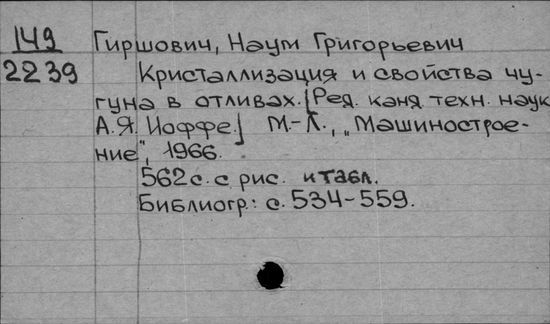 149 Гиршович, Наум Григорьевич
2239 Кристаллизация и свойства чу-
гуна в отливах. [Ред. канд техн. наук
А.Я. Иоффе.] М.-Л., „Машинострое-
ние", 1966.
562 с. с рис. и табл.
Библиогр.: с. 534-559.